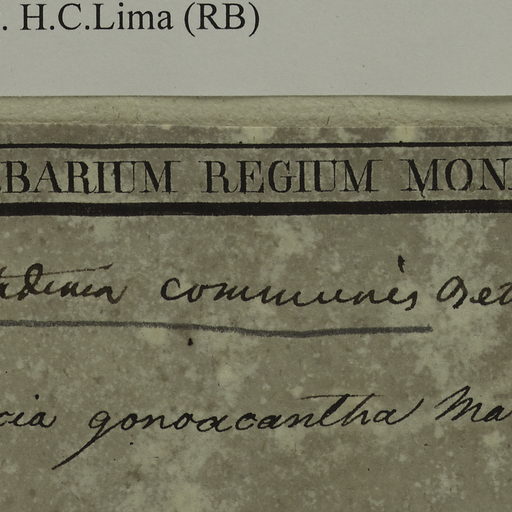 . H.C.Lima (RB)
BARIUM REGIUM MON
communis
cia gonoacantha Ma